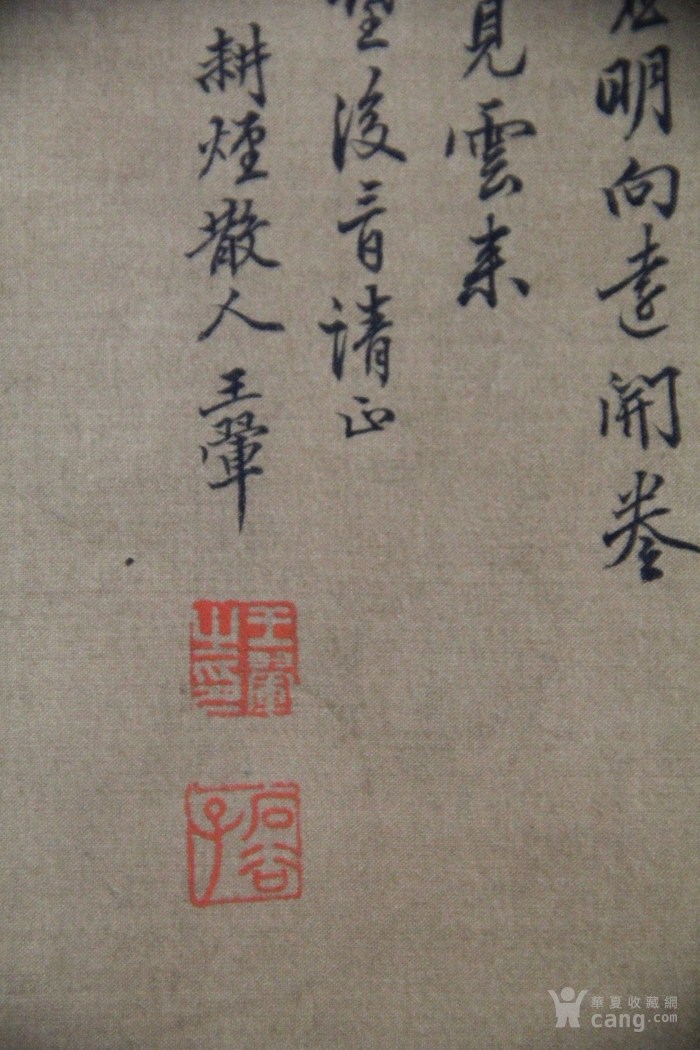 明向遠開卷
見雲来
後音請正
耕煙散人王翬
王翬之印
石谷子
華夏收藏網
cang.com